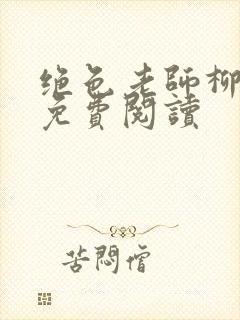 绝色老師柳
免費閱讀
苦悶僧